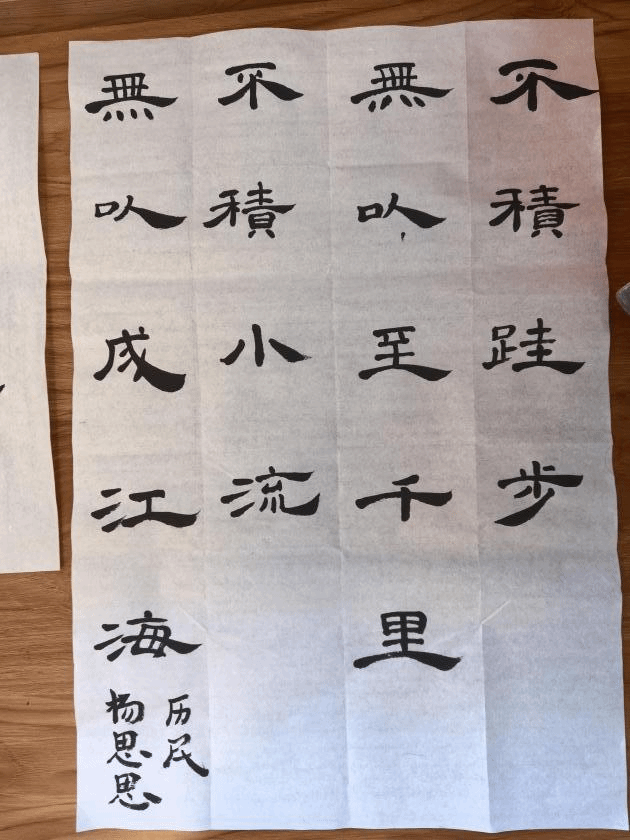 不積跬步
無以至千里
不積小流
無以成江海
历民
杨思思